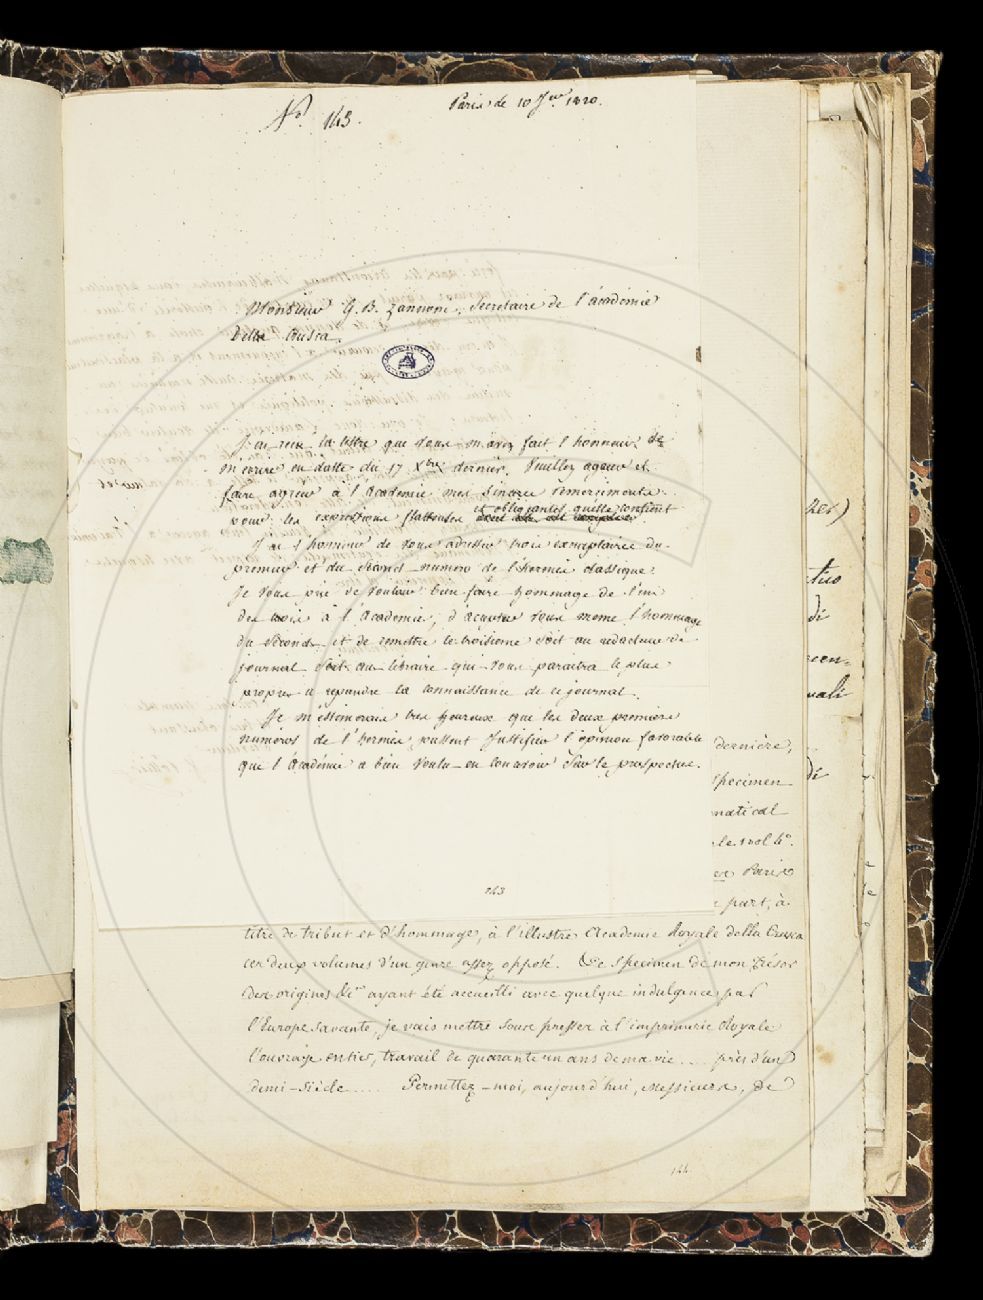 N.° 143.
Paris le 10 Jer 1820.
Monsieur G. B. Zannoni, Secretaire de l'académie
della Crusca.
J'ai reçu la lettre que vous m'avez fait l'honneur de
m'ecrire en datte du 17 Xbre dernier. Veuillez agreer et
faire agreer à l'Academie mes sinceres remerciments
pour les expressions flatteuses et obligeantes qu'elle contient
J'ai l'honneur de vous adresser trois exemplaires du
premier et du second numero de l'hermès classique.
Je vous prie de vouloir bien faire hommage de l'un
des trois à l'Academie, d'accepter vous meme l'hommage
du second et de remettre le troisieme soit au redacteur de
journal soit au libraire qui vous paraitra le plus
propre a repandre la connaissance de ce journal.
Je m'estimerais tres heureux que les deux premiers
numeros de l'hermès pussent justifier l'opinion favorable
que l'Academie a bien voulu en concevoir sur le prospectus.
143
dernière,
specimen
matical
vol 4°.
Paris
part, à
titre de tribut et d'hommage, à l'illustre Academie Royale della Crusca
ces deux volumes d'un genre assez opposé. Ce Specimen de mon Trésor
des origines &a ayant été accueilli avec quelque indulgence par
l'Europe savante, je vais mettre sous presser à l'imprimerie Royale
l'ouvrage entier, travail de quarante un ans de ma vie .... près d'un
demi-siècle .... Permettez-moi, aujourd'hui, Messieurs, de
144.